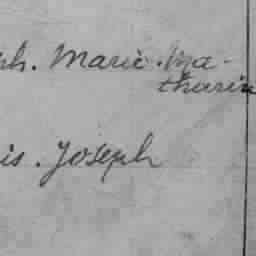 ph. Marie. Ma-
thurin
is. Joseph